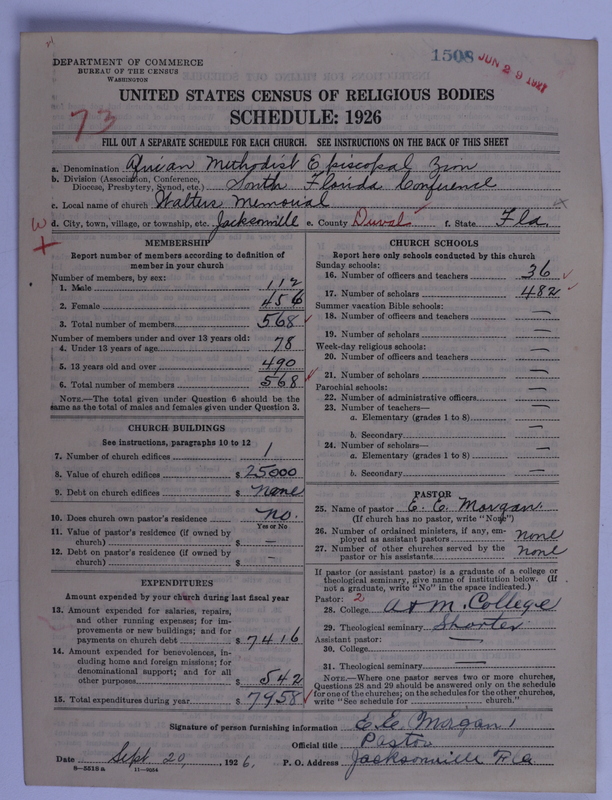 1508 JUN 29 1927
DEPARTMENT OF COMMERCE
BUREAU OF THE CENSUS
WASHINGTON
UNITED STATES CENSUS OF RELIGIOUS BODIES
SCHEDULE: 1926
73
FILL OUT A SEPARATE SCHEDULE FOR EACH CHURCH. SEE INSTRUCTIONS ON THE BACK OF THIS SHEET
a. Denomination African Methodist Episcopal Zion
b. Division (Association, Conference,
Diocese, Presbytery, Synod, etc.) South Florida Conference
c. Local name of church Walters Memorial
d. City, town, village, or township, etc. Jacksonville e. County Duval f. State Fla.
MEMBERSHIP
Report number of members according to definition of
member in your church
Number of members, by sex:
1. Male 112
2. Female 456
3. Total number of members 568
Number of members under and over 13 years old:
4. Under 13 years of age 78
5. 13 years old and over 490
6. Total number of members 568
NOTE.—The total given under Question 6 should be the
same as the total of males and females given under Question 3.
CHURCH BUILDINGS
See instructions, paragraphs 10 to 12
7. Number of church edifices 1
8. Value of church edifices $ 25000
9. Debt on church edifices $ None
10. Does church own pastor's residence No.
Yes or No
11. Value of pastor's residence (if owned by
church) $ —
12. Debt on pastor's residence (if owned by
church) $ —
EXPENDITURES
Amount expended by your church during last fiscal year
13. Amount expended for salaries, repairs,
and other running expenses; for im-
provements or new buildings; and for
payments on church debt $ 7416
14. Amount expended for benevolences, in-
cluding home and foreign missions; for
denominational support; and for all
other purposes $ 542
15. Total expenditures during year $ 7958
CHURCH SCHOOLS
Report here only schools conducted by this church
Sunday schools:
16. Number of officers and teachers 36
17. Number of scholars 482
Summer vacation Bible schools:
18. Number of officers and teachers —
19. Number of scholars —
Week-day religious schools:
20. Number of officers and teachers —
21. Number of scholars —
Parochial schools:
22. Number of administrative officers —
23. Number of teachers—
a. Elementary (grades 1 to 8) —
b. Secondary —
24. Number of scholars—
a. Elementary (grades 1 to 8) —
b. Secondary —
PASTOR
25. Name of pastor E. E. Morgan.
(If church has no pastor, write "None")
26. Number of ordained ministers, if any, em-
ployed as assistant pastors none
27. Number of other churches served by the
pastor or his assistants none
If pastor (or assistant pastor) is a graduate of a college or
theological seminary, give name of institution below. (If
not a graduate, write "No" in the space indicated.)
Pastor: 2
28. College A & M. College
29. Theological seminary Shorter
Assistant pastor: —
30. College
31. Theological seminary —
NOTE.—Where one pastor serves two or more churches,
Questions 28 and 29 should be answered only on the schedule
for one of the churches; on the schedules for the other churches,
write "See schedule for church."
Signature of person furnishing information E. E. Morgan
Official title Pastor
Date Sept 20, 1926. P. O. Address Jacksonville Fla
8—5518a 11—9034